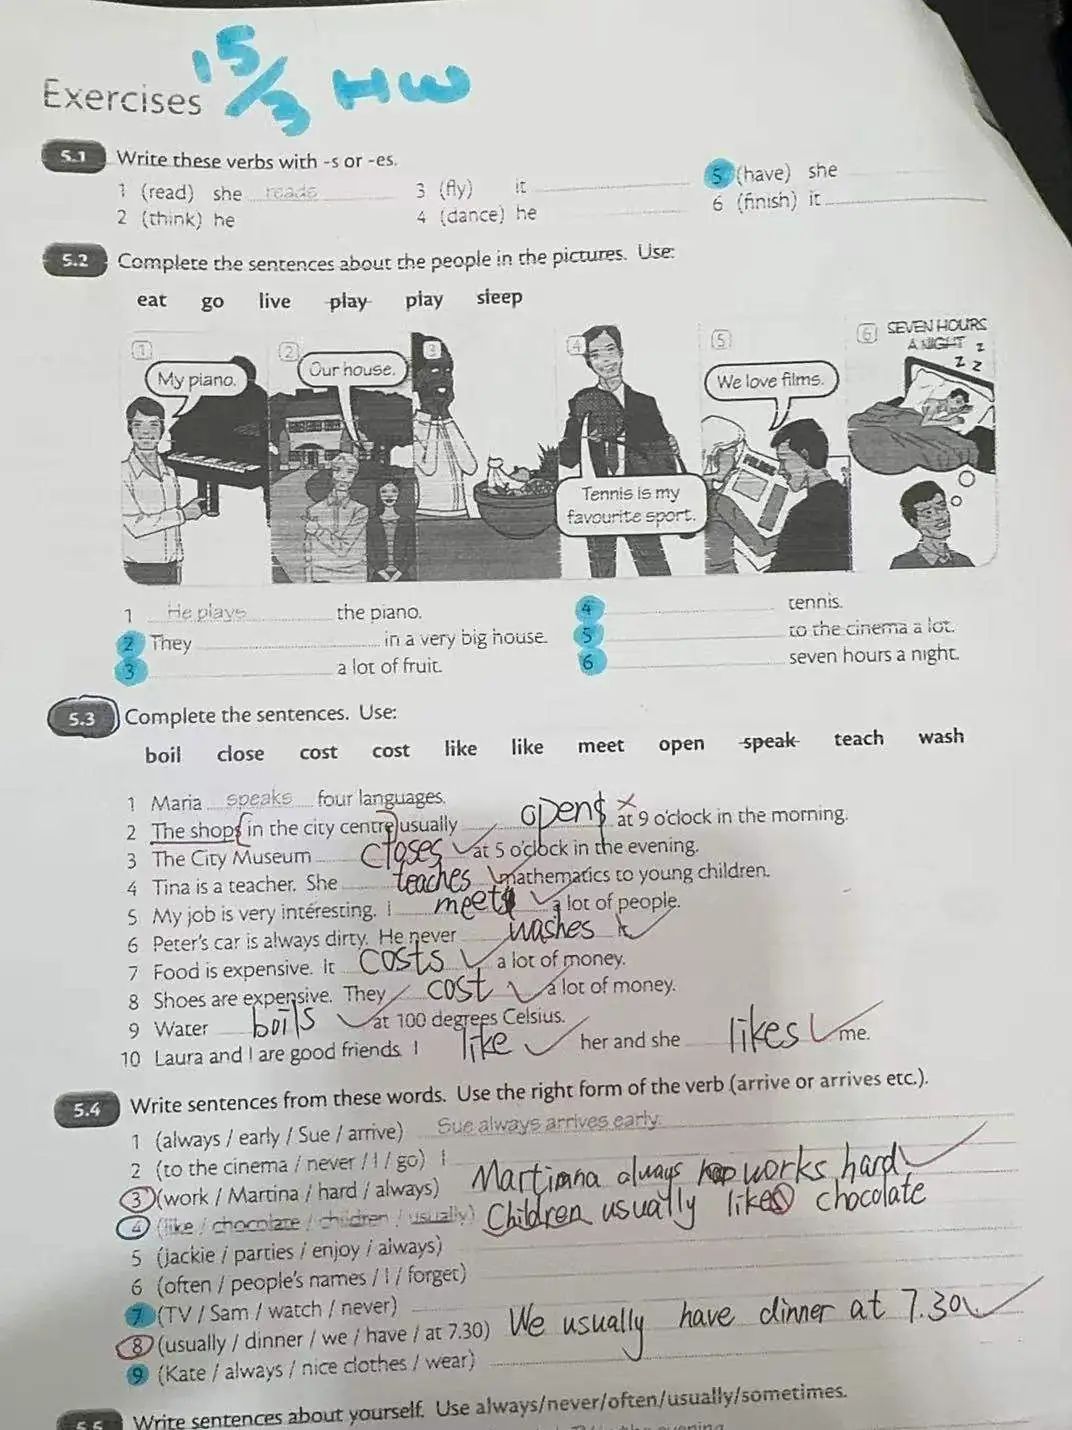 15/3 HW
Exercises
5.1 Write these verbs with -s or -es.
1 (read) she reads
2 (think) he
3 (fly) it
4 (dance) he
5 (have) she
6 (finish) it
5.2 Complete the sentences about the people in the pictures. Use:
eat go live play play sleep
1 My piano.
2 Our house.
3
4 Tennis is my
favourite sport.
5 We love films.
6 SEVEN HOURS
A NIGHT z
z z
1 He plays the piano.
2 They in a very big house.
3 a lot of fruit.
4 tennis.
5 to the cinema a lot.
6 seven hours a night.
5.3 Complete the sentences. Use:
boil close cost cost like like meet open speak teach wash
1 Maria speaks four languages.
2 The shops in the city centre usually opens at 9 o'clock in the morning.
3 The City Museum closes at 5 o'clock in the evening.
4 Tina is a teacher. She teaches mathematics to young children.
5 My job is very interesting. I meet a lot of people.
6 Peter's car is always dirty. He never washes it.
7 Food is expensive. It costs a lot of money.
8 Shoes are expensive. They cost a lot of money.
9 Water boils at 100 degrees Celsius.
10 Laura and I are good friends. I like her and she likes me.
5.4 Write sentences from these words. Use the right form of the verb (arrive or arrives etc.).
1 (always / early / Sue / arrive) Sue always arrives early.
2 (to the cinema / never / I / go) I
3 (work / Martina / hard / always) Martinna always works hard
4 (like / chocolate / children / usually) Children usually likes chocolate
5 (Jackie / parties / enjoy / always)
6 (often / people's names / I / forget)
7 (TV / Sam / watch / never)
8 (usually / dinner / we / have / at 7.30) We usually have dinner at 7.30
9 (Kate / always / nice clothes / wear)
5.5 Write sentences about yourself. Use always/never/often/usually/sometimes.